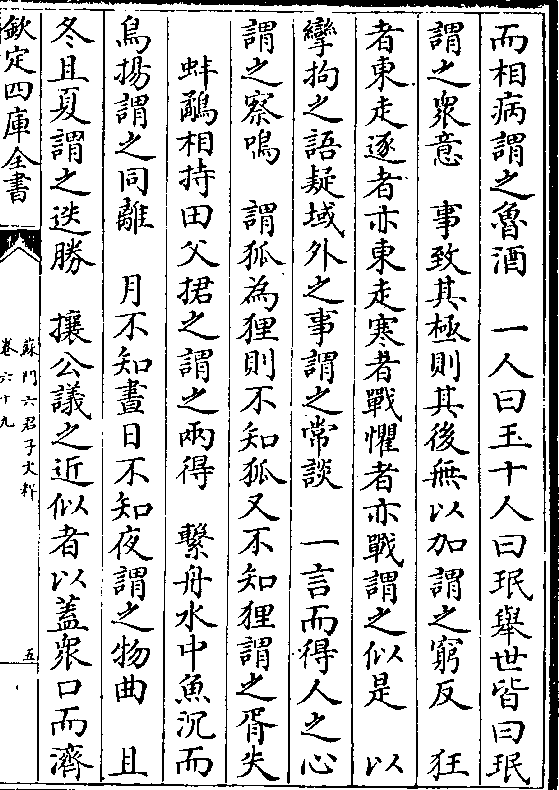 而相病謂之魯酒　一人曰玉十人曰珉舉世皆曰珉
謂之衆意　事致其極則其後無以加謂之窮反　狂
者東走逐者亦東走寒者戰懼者亦戰謂之似是　以
攣拘之語疑域外之事謂之常談　一言而得人之心
謂之察鳴　謂狐為狸則不知狐又不知狸謂之胥失
蚌鷸相持田父捃之謂之兩得　繫舟水中魚沉而
鳥揚謂之同離　月不知晝日不知夜謂之物曲　且
冬且夏謂之迭勝　攘公議之近似者以蓋衆口而濟
欽定四庫全書
蘇門六君子文粹
卷六十九
五